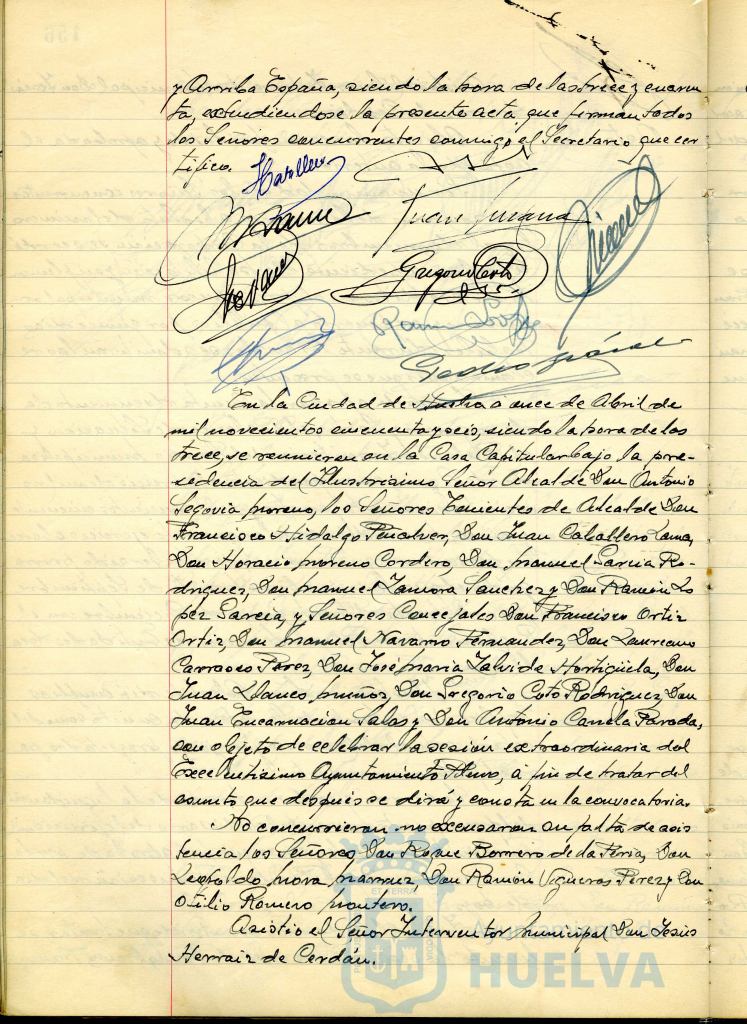 y Arriba España, siendo la hora de las trece y cuaren
ta, extendiendose la presente acta, que firman todos
los Señores concurrentes conmigo el Secretario que cer
tifico.
Juan
Gregorio Coto
Ramón
Pedro
En la Ciudad de Huelva a once de Abril de
mil novecientos cincuenta y seis, siendo la hora de las
trece, se reunieron en la Casa Capitular bajo la pre-
sidencia del Illustrisimo Señor Alcalde Don Antonio
Segovia Moreno, los Señores Tenientes de Alcalde Don
Francisco Hidalgo Peñalver, Don Juan Caballero
Don Horacio Moreno Cordero, Don Manuel Garcia Ro-
driguez, Don Manuel Zamora Sanchez y Don Ramón Lo
pez Garcia, y Señores Concejales Don Francisco Ortiz
Ortiz, Don Manuel Navarro Fernandez, Don Laureano
Carrasco Perez, Don José Maria Zalvide Hortigüela, Don
Juan Llanes Muñoz, Don Gregorio Coto Rodriguez, Don
Juan Encarnacion Salas y Don Antonio Canela Parada,
con objeto de celebrar la sesión extraordinaria del
Excelentisimo Ayuntamiento Pleno, á fin de tratar del
asunto que después se dirá y consta en la convocatoria.
No concurrieron no excusaron su falta de asis
tencia los Señores Don Roque Borrero de la Feria, Don
Leopoldo Mora Don Ramón Vigueras Perez y Don
Otilio Romero Montero.
Asistió el Señor Interventor Municipal Don Jesús
Herraiz de Cerdán.
HUELVA